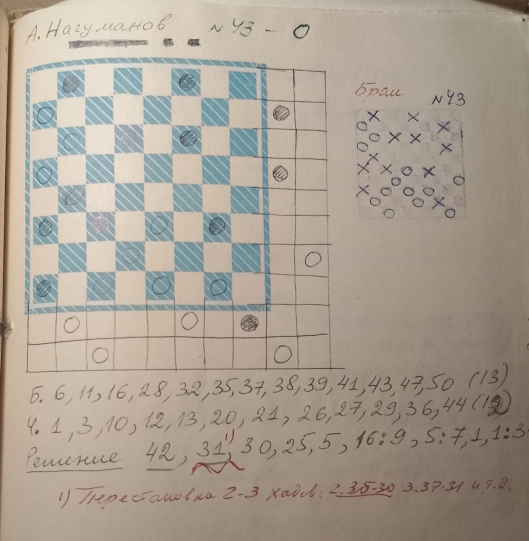 А. Нагуманов № 43 - 0
Брам
№ 43
Б. 6, 11, 16, 28, 32, 35, 37, 38, 39, 41, 43, 47, 50 (13)
Ч. 1, 3, 10, 12, 13, 20, 21, 26, 27, 29, 36, 44 (12)
Решение 42, 31,¹⁾ 30, 25, 5, 16:9, 5:7, 1, 1:3
¹⁾ Перестановка 2-3 ходов: 2.35-30 3.37-31 и т.д.